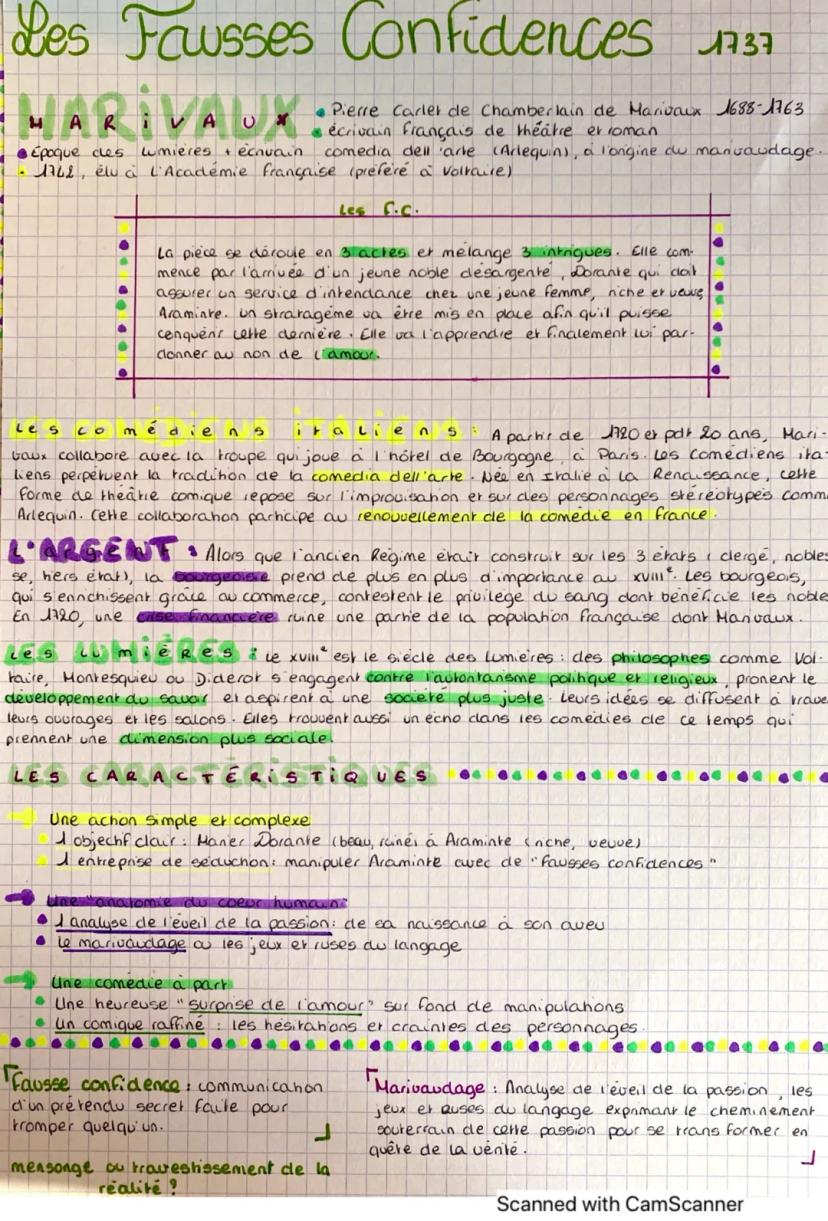 Les Fausses Confidences 1737
MARIVAUX
• Pierre Carlet de Chamberlain de Marivaux 1688-1763
• écrivain français de théâtre et roman
• Époque des lumières + écrivain comedia dell'arte (Arlequin), à l'origine du marivaudage.
• 1742, élu à l'Académie française (préféré à Voltaire)
Les F.C.
La pièce se déroule en 3 actes et mélange 3 intrigues. Elle com-
mence par l'arrivée d'un jeune noble désargenté, Dorante qui doit
assurer un service d'intendance chez une jeune femme, riche et veuve,
Araminte. un stratagème va être mis en place afin qu'il puisse
conquérir cette dernière. Elle va l'apprendre et finalement lui par-
donner au non de l'amour.
Les comédiens italiens : A partir de 1720 et pdt 20 ans, Mari-
vaux collabore avec la troupe qui joue à l'hôtel de Bourgogne, à Paris. Les comédiens ita-
liens perpétuent la tradition de la comedia dell'arte. Née en Italie à la Renaissance, cette
forme de théâtre comique repose sur l'improvisation et sur des personnages stéréotypés comm
Arlequin. Cette collaboration participe au renouvellement de la comédie en france.
L'ARGENT : Alors que l'ancien Régime était construit sur les 3 états (clergé, nobles-
se, tiers état), la bourgeoisie prend de plus en plus d'importance au XVIIIe. Les bourgeois,
qui s'enrichissent grâce au commerce, contestent le privilège du sang dont bénéficie les noble
En 1720, une crise financière ruine une partie de la population française dont Marivaux.
Les LUMIÈRES : Le XVIIIe est le siècle des lumières : des philosophes comme Vol-
taire, Montesquieu ou Diderot s'engagent contre l'autoritarisme politique et religieux, pronent le
développement du savoir et aspirent à une société plus juste. Leurs idées se diffusent à trave
leurs ouvrages et les salons. Elles trouvent aussi un écho dans les comédies de ce temps qui
prennent une dimension plus sociale.
LES CARACTÉRISTIQUES
→ Une action simple et complexe
• 1 objectif clair : Marier Dorante (beau, ruiné) à Araminte (riche, veuve)
• 1 entreprise de séduction : manipuler Araminte avec de "fausses confidences"
→ Une "anatomie du coeur humain"
• 1 analyse de l'éveil de la passion : de sa naissance à son aveu
• Le marivaudage ou les jeux et ruses du langage
→ Une comédie à part
• Une heureuse "surprise de l'amour" sur fond de manipulations
• un comique raffiné : les hésitations et craintes des personnages.
Fausse confidence : communication
d'un prétendu secret faite pour
tromper quelqu'un.
mensonge ou travestissement de la
réalité ?
Marivaudage : Analyse de l'éveil de la passion, les
jeux et ruses du langage exprimant le cheminement
souterrain de cette passion pour se trans former en
quête de la vérité.
Scanned with CamScanner